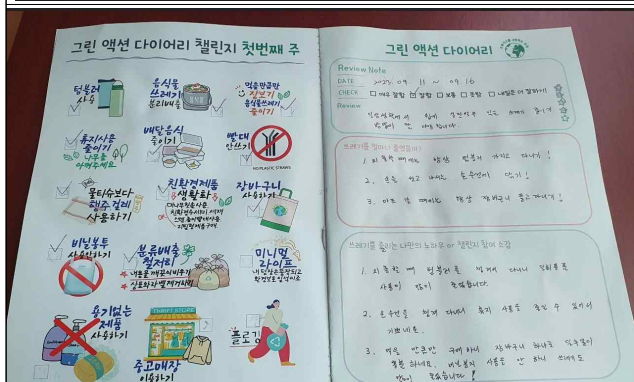 그린 액션 다이어리 챌린지 첫번째 주
텀블러
사용
음식물
쓰레기
분리배출
먹을만큼만
장보기
음식물쓰레기
줄이기
휴지사용
줄이기
나무를
아껴주세요
배달음식
줄이기
빨대
안쓰기
NO PLASTIC STRAWS
물티슈보다
행주 걸레
사용하기
친환경제품
생활화
장바구니
사용하기
비닐봉투
사용안하기
분류배출
철저히
내용물 깨끗이 비우기
미니멀
라이프
용기없는
제품
사용하기
THRIFT STORE
중고매장
이용하기
플로깅
그린 액션 다이어리
Review Note
DATE 2023. 09. 11 ~ 09. 16
CHECK 매우 잘함 잘함 보통 못함 내일은 더 잘하기
Review
쓰레기를 얼마나 줄였을까?
1. 외출할 때에는 항상 텀블러 가지고 다니기!
2. 손을 씻고 나서는 손수건에 닦기!
3. 마트 갈 때에는 항상 장바구니 들고가기!
쓰레기를 줄이는 나만의 노하우 or 챌린지 참여 소감
1. 외출할 때 텀블러를 챙겨 다니니 일회용품
사용이 많이 줄었습니다.
2. 손수건을 챙겨 다니니 휴지 사용을 줄일 수 있어서
기쁘네요.
3. 먹을 만큼만 구매하니 장바구니 하나로도
충분하네요. 비닐봉지 사용을 안 하니 쓰레기도
많이 줄었습니다!